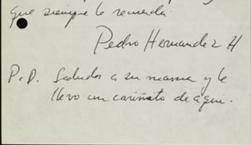 que siempre lo recuerda.
Pedro Hernandez H
P.D. Saludos a su mama y le
llevo un cariñato de aqui.